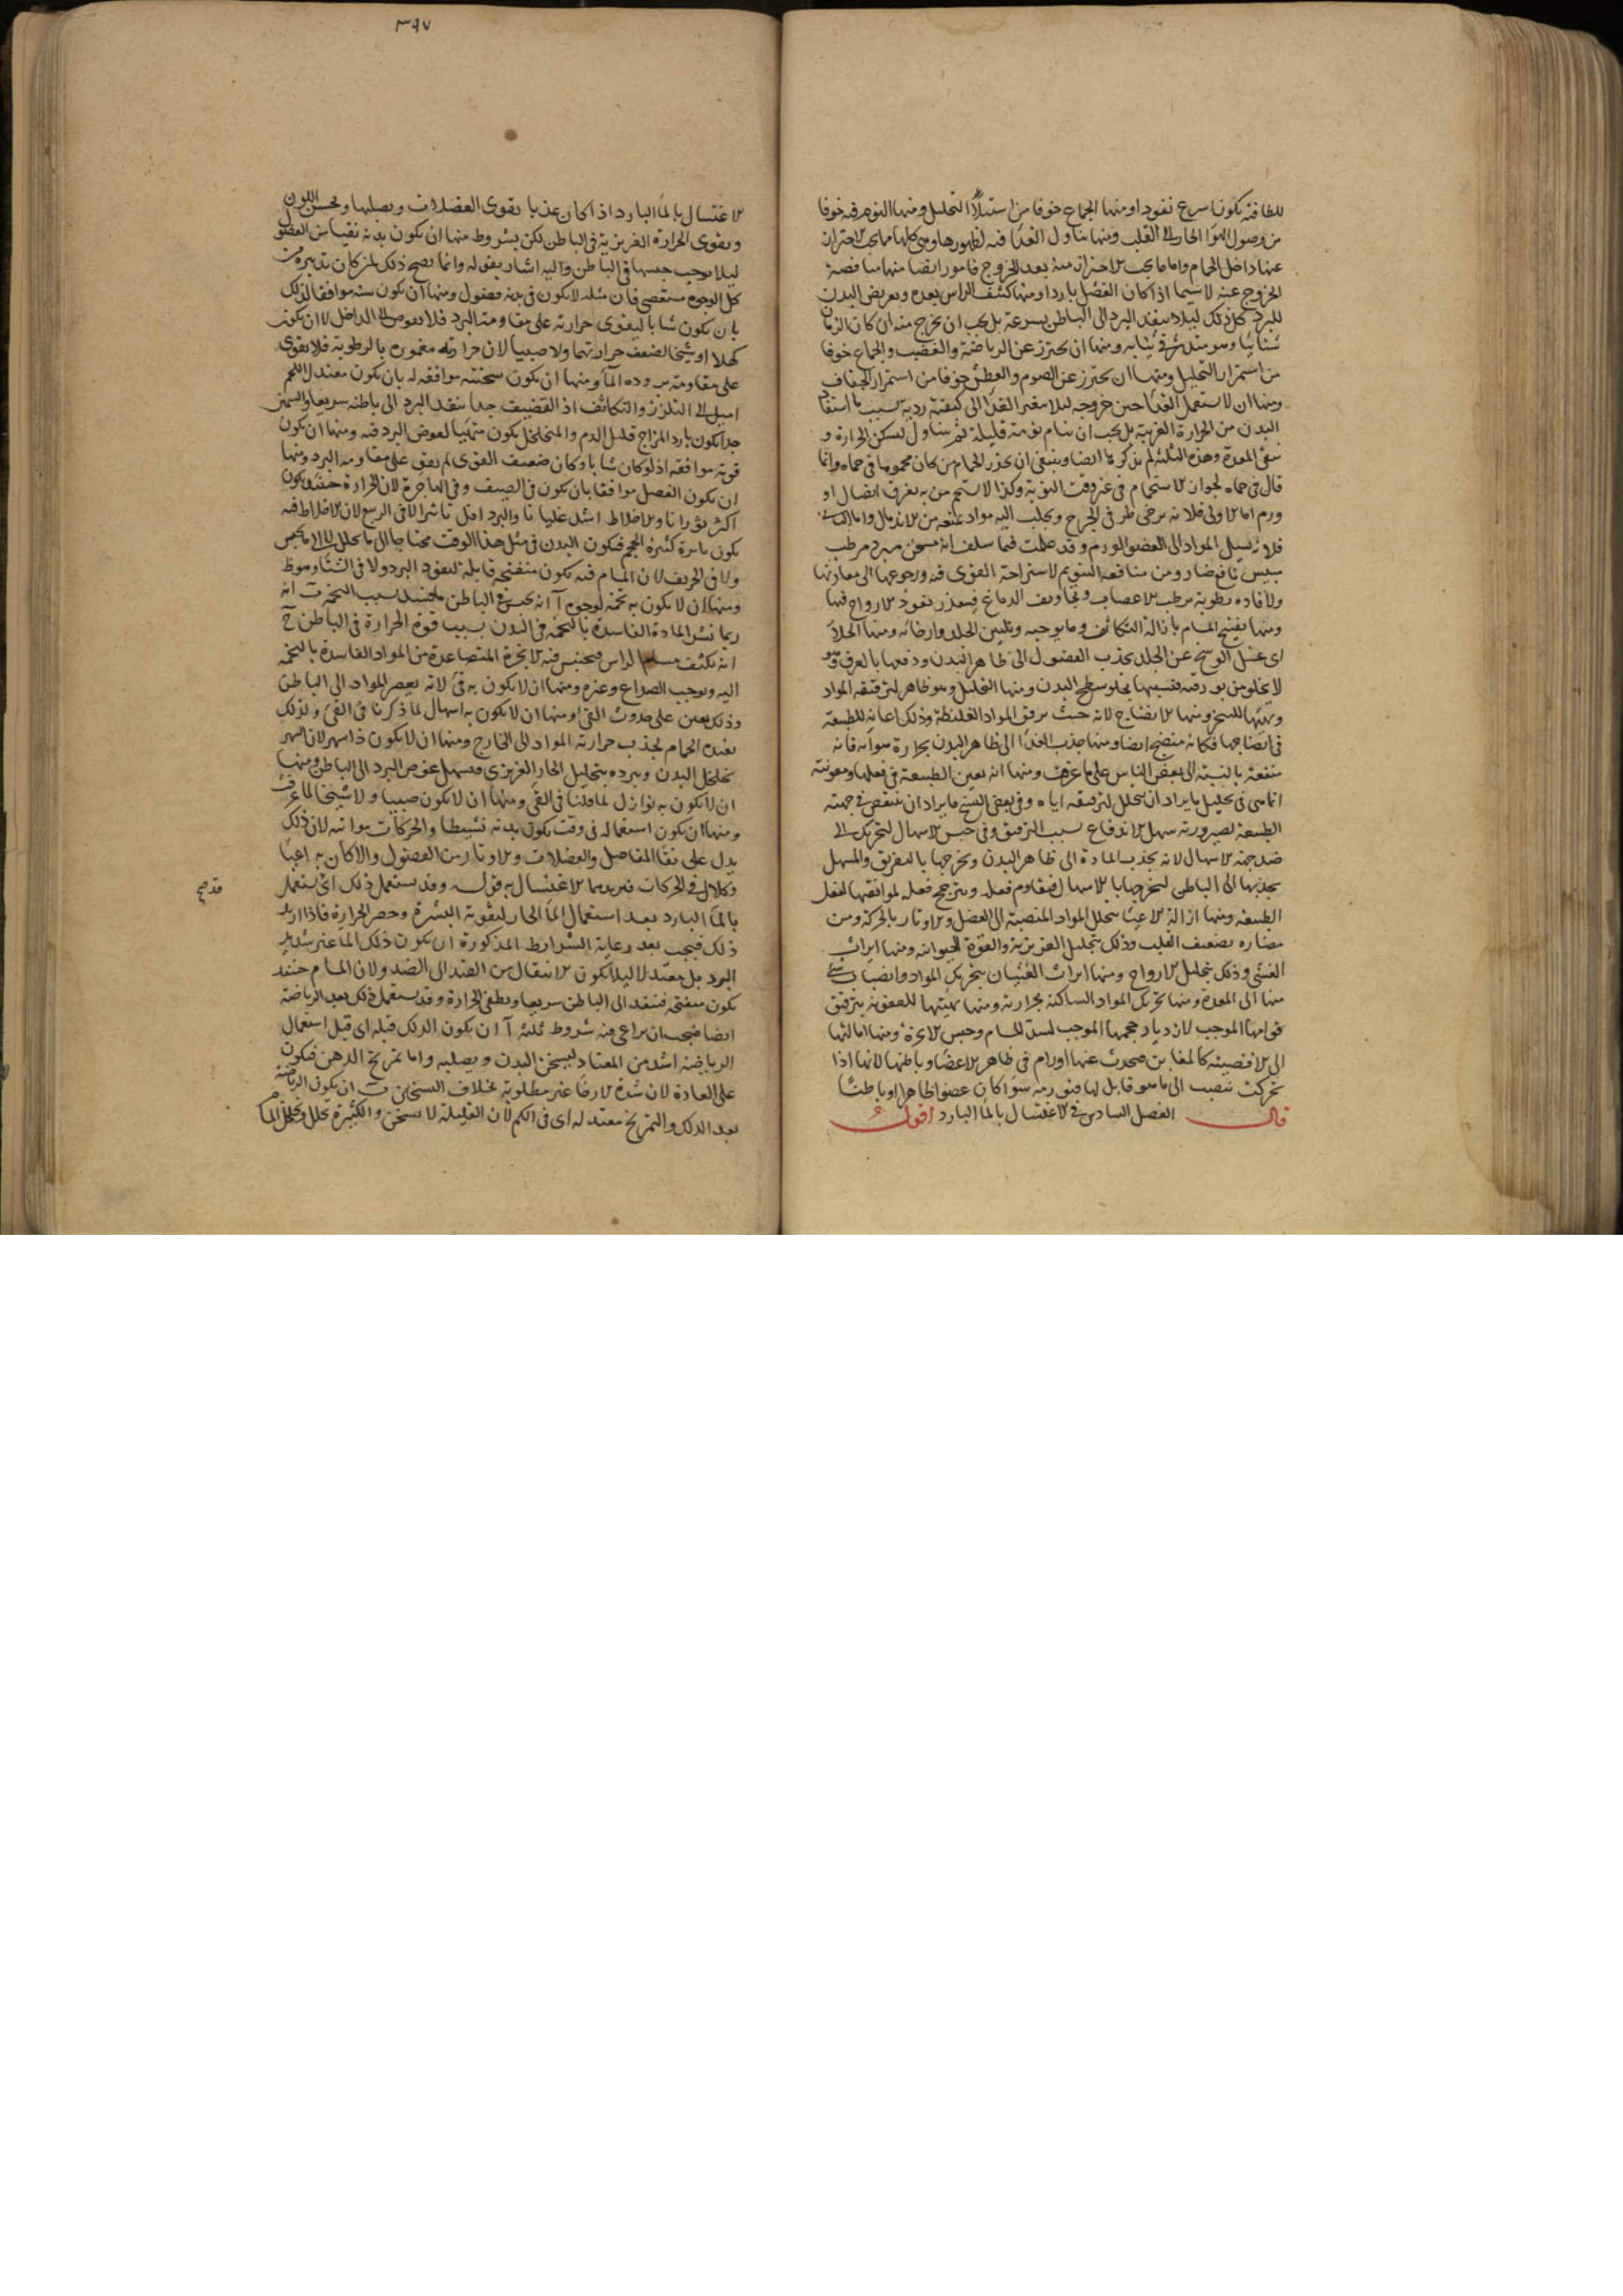 للطافته يكون اسرع نفوذا ومنها الجماع خوفا من استيلاء التحليل ومنها النوم فيه خوفا
من وصول الهواء الحار الى القلب ومنها تناول الغذا فيه لظهورها وهي كلها مما يجب الاحتراز
عنها داخل الحمام واما ما يجب الاحتراز منه بعد الخروج فامور ايضا منها مفاصة
الخروج عنه لا سيما اذا كان الفصل باردا ومنها كشف الراس بعده وتعريض البدن
للبرد كل ذلك ليلا ينفذ البرد الى الباطن بسرعة بل يجب ان يخرج منه ان كان الزمان
شتائيا وهو متدثر في ثيابه ومنها ان يحترز عن الرياضة والغضب والجماع خوفا
من استمرار التحليل ومنها ان يحترز عن الصوم والعطش خوفا من استمرار الجفاف
ومنها ان لا يستعمل الغذا حين خروجه ليلا يتغير الغذا الى كيفية ردية بسبب ما استفاد
البدن من الحرارة الغريبة بل يجب ان ينام نومة قليلة ثم يتناول ليسكن الحرارة و
تنقى المعدة وهذه الثلثة لم يذكرها ايضا وينبغى ان يحذر الحمام من كان محموما في حماه وانما
قال في حماه لجواز الاستحمام في غير وقت النوبة وكذا لا يستحم من به تفرق اتصال او
ورم اما الاولى فلانه يرخى طرفى الجرح ويجلب اليه مواد تمنعه من الاندمال واما الثانى
فلانه يسيل المواد الى العضو الورم وقد علمت فيما سلف انه مسخن مبرد مرطب
ميبس نافع ضار ومن منافعه التنويم لاستراحة القوى فيه ورجوعها الى معادنها
ولافاده رطوبة مرطب الاعصاب وتجاويف الدماغ فيعذر نفوذ الارواح فيها
ومنها تفتيح المسام بازالة التكاثف وما يوجبه وتليين الجلد وارخائه ومنها الجلاء
اى غسل الوسخ عن الجلد بجذب الفضول الى ظاهر البدن ودفعها بالعرق وهو
لا يخلو من بورقية فبسببها يجلو سطح البدن ومنها التحليل وهو ظاهر لترقيقه المواد
وتهيئها للتبخر ومنها الانضاج لانه حيث يرقق المواد الغليظة وذلك اعانة للطبيعة
في انضاجها فكانه منضج ايضا ومنها جذب الغذا الى ظاهر البدن بحرارة هوائه فانه
منفعة بالنسبة الى بعض الناس على ما عرفت ومنها انه يعين الطبيعة في فعلها ومعونته
انما هي في تحليل ما يراد ان يتحلل لترقيقه اياه وفي بعض النسخ ما يراد ان ينتفض في جهته
الطبيعة لصيرورته سهل الاندفاع بسبب الترقيق وفي حبس الاسهال لتحريكه الى
ضد جهة الاسهال لانه يجذب المادة الى ظاهر البدن ويخرجها بالتعريق والمسهل
يجذبها الى الباطن ليخرجها بالاسهال فيقاوم فعله ويترجح فعله لموافقتها لفعل
الطبيعة ومنها ازالة الاعيا بتحلل المواد المنصبة الى العضل والاوتار بالحركة ومن
مضاره تضعيف القلب وذلك بتحليل الغريزية والقوة الحيوانية ومنها ايراث
الغشى وذلك بتحليل الارواح ومنها ايراث الغثيان بتحريك المواد وانصباب شئ
منها الى المعدة ومنها تحريك المواد الساكنة بحرارته ومنها تهيئتها للعفونة بترقيق
قوامها الموجب لازدياد حجمها الموجب لسد المسام وحبس الابخرة ومنها امالتها
الى الافضية كالمغابن فيحدث عنها اورام في ظاهر الاعضا وباطنها لانها اذا
تحركت تنصب الى ما هو قابل لها فتورمه سوا كان عضوا ظاهرا او باطنا
قال الفصل السادس في الاغتسال بالما البارد اقول
٣٩٧
الاغتسال بالما البارد اذا كان عذبا يقوى العضلات ويصلبها ويحسن اللون
ويقوى الحرارة الغريزية في الباطن لكن بشروط منها ان يكون بدنه نقيا من الفضول
ليلا يوجب حبسها في الباطن واليه اشار بقوله وانما يصح ذلك لمن كان تدبيره من
كل الوجوه مستقصى فان مثله لا يكون في بدنه فضول ومنها ان يكون سنه موافقا لذلك
بان يكون شابا ليقوى حرارته على مقاومة البرد فلا يغوص الى الداخل لا ان يكون
كهلا او شيخا لضعف حرارتهما ولا صبيا لان حرارته مغمورة بالرطوبة فلا تقوى
على مقاومة برودة الما ومنها ان يكون سحنته موافقة له بان يكون معتدل اللحم
اميل الى التلزز والتكاثف اذ القضيف جدا ينفذ البرد الى باطنه سريعا والسمين
جدا يكون بارد المزاج قليل الدم والمتخلخل يكون متهيئا لغوص البرد فيه ومنها ان يكون
قوته موافقة اذ لو كان شابا وكان ضعيف القوى لم يقو على مقاومة البرد ومنها
ان يكون الفصل موافقا بان يكون في الصيف وفي الهاجرة لان الحرارة حينئذ يكون
اكثر ثورانا والاخلاط اشد غليانا والبرد اقل تاثيرا لا في الربيع لان الاخلاط فيه
يكون ثايرة كثيرة الحجم فيكون البدن في مثل هذا الوقت محتاجا الى ما يحلل لا الى ما يحبس
ولا في الخريف لان المسام فيه يكون منفتحة قابلة لنفوذ البرد ولا في الشتا وهو ظ
ومنها ان لا يكون به تخمة لوجوه آ انه يحبس في الباطن ما يفسد بسبب التخمة ب انه
ربما نشر المادة الفاسدة بالتخمة في البدن بسبب قوة الحرارة في الباطن ج
انه يكثف مسام الراس فيحتبس فيه الابخرة المتصاعدة من المواد الفاسدة بالتخمة
اليه ويوجب الصداع وغيره ومنها ان لا يكون به قئ لانه يعصر المواد الى الباطن
وذلك يعين على حدوث القئ ومنها ان لا يكون به اسهال لما ذكرنا في القئ ولذلك
يفيده الحمام لجذب حرارته المواد الى الخارج ومنها ان لا يكون ذا سهر لان السهر
يخلخل البدن ويبرده بتحليل الحار الغريزى فيسهل غوص البرد الى الباطن ومنها
ان لا يكون به نوازل لما قلنا في القئ ومنها ان لا يكون صبيا ولا شيخا لما عرفت
ومنها ان يكون استعماله في وقت يكون بدنه نشيطا والحركات مواتية لان ذلك
يدل على نقا المفاصل والعضلات والاوتار من الفضول والا كان به اعيا
وكلال في الحركات فيزيدهما الاغتسال به قوله وقد يستعمل ذلك اى يستعمل
قد صح
بالما البارد بعد استعمال الما الحار لتقوية البشرة وحصر الحرارة فاذا اريد
ذلك فيجب بعد رعاية الشرايط المذكورة ان يكون ذلك الما غير شديد
البرد بل معتدلا ليلا يكون الانتقال من الضد الى الضد ولان المسام حينئذ
يكون منفتحة فينفذ الى الباطن سريعا ويطفى الحرارة وقد يستعمل ذلك بعد الرياضة
ايضا فيجب ان يراعى فيه شروط ثلثة آ ان يكون الدلك قبله اى قبل استعمال
الرياضة اشد من المعتاد ليسخن البدن ويصلبه واما تمريخ الدهن فيكون
على العادة لان شدة الارخا غير مطلوبة بخلاف التسخين ب ان يكون الرياضة
بعد الدلك والتمريخ معتدلة اى في الكم لان القليلة لا تسخن والكثيرة تحلل وتخلخل المسام